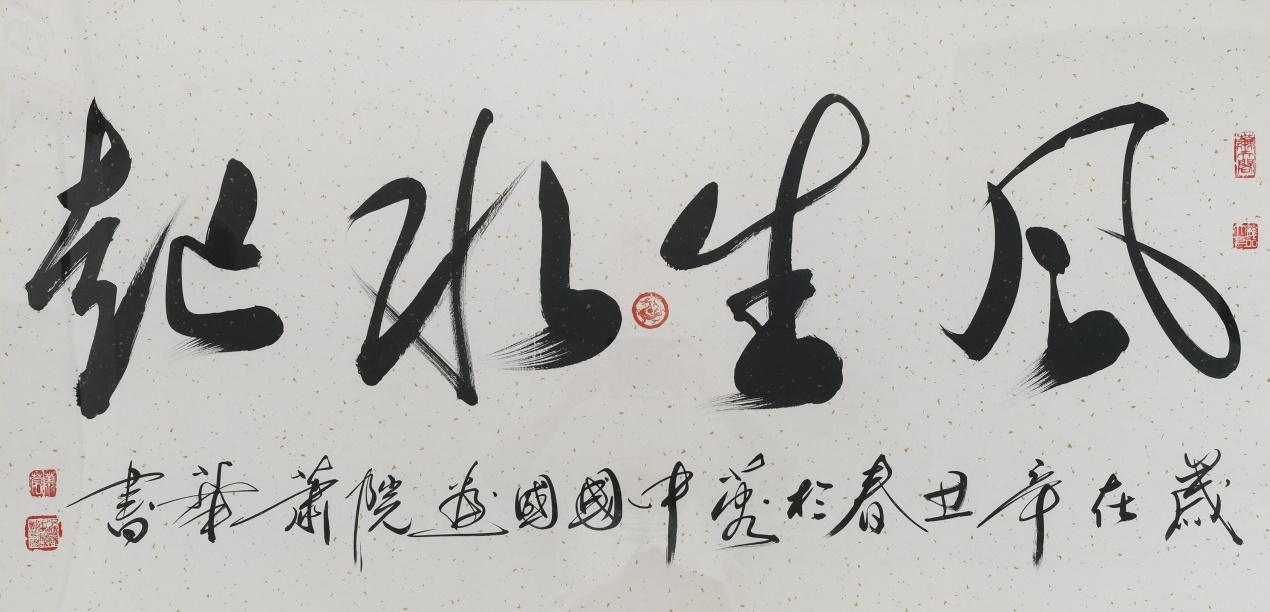 风生水起
歲在辛丑春於中國國畫院蕭華書